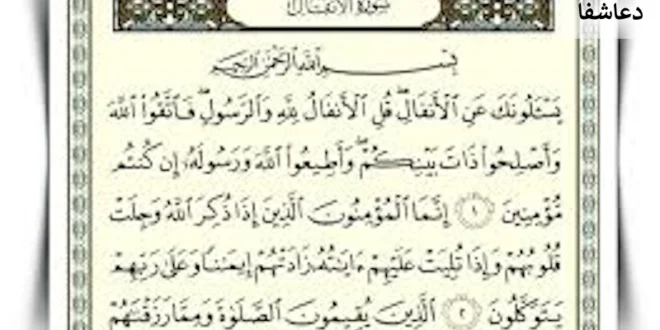 دعاشفا
سورة الأنفال
بسم الله الرحمن الرحيم
يَسْـَٔلُونَكَ عَنِ ٱلْأَنفَالِ ۖ قُلِ ٱلْأَنفَالُ لِلَّهِ وَٱلرَّسُولِ ۖ فَٱتَّقُوا۟ ٱللَّهَ
وَأَصْلِحُوا۟ ذَاتَ بَيْنِكُمْ ۖ وَأَطِيعُوا۟ ٱللَّهَ وَرَسُولَهُۥٓ إِن كُنتُم
مُّؤْمِنِينَ ١ إِنَّمَا ٱلْمُؤْمِنُونَ ٱلَّذِينَ إِذَا ذُكِرَ ٱللَّهُ وَجِلَتْ
قُلُوبُهُمْ وَإِذَا تُلِيَتْ عَلَيْهِمْ ءَايَٰتُهُۥ زَادَتْهُمْ إِيمَٰنًا وَعَلَىٰ رَبِّهِمْ
يَتَوَكَّلُونَ ٢ ٱلَّذِينَ يُقِيمُونَ ٱلصَّلَوٰةَ وَمِمَّا رَزَقْنَٰهُمْ